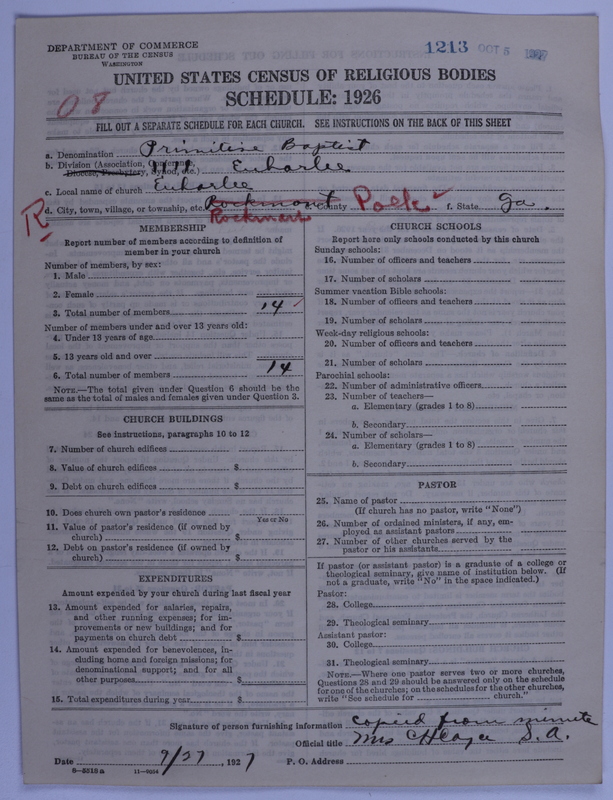 DEPARTMENT OF COMMERCE
BUREAU OF THE CENSUS
WASHINGTON
1213 OCT 5
UNITED STATES CENSUS OF RELIGIOUS BODIES
SCHEDULE: 1926
08
FILL OUT A SEPARATE SCHEDULE FOR EACH CHURCH. SEE INSTRUCTIONS ON THE BACK OF THIS SHEET
a. Denomination Primitive Baptist
b. Division (Association, Conference, Diocese, Presbytery, Synod, etc.) Euharlee
c. Local name of church Euharlee
d. City, town, village, or township, etc. Rockmont e. County Polk f. State Ga.
R Rockmart
MEMBERSHIP
Report number of members according to definition of
member in your church
Number of members, by sex:
1. Male
2. Female
3. Total number of members 14
Number of members under and over 13 years old:
4. Under 13 years of age
5. 13 years old and over
6. Total number of members 14
NOTE.—The total given under Question 6 should be the
same as the total of males and females given under Question 3.
CHURCH BUILDINGS
See instructions, paragraphs 10 to 12
7. Number of church edifices
8. Value of church edifices $
9. Debt on church edifices $
10. Does church own pastor's residence
Yes or No
11. Value of pastor's residence (if owned by
church) $
12. Debt on pastor's residence (if owned by
church) $
EXPENDITURES
Amount expended by your church during last fiscal year
13. Amount expended for salaries, repairs,
and other running expenses; for im-
provements or new buildings; and for
payments on church debt $
14. Amount expended for benevolences, in-
cluding home and foreign missions; for
denominational support; and for all
other purposes $
15. Total expenditures during year $
CHURCH SCHOOLS
Report here only schools conducted by this church
Sunday schools:
16. Number of officers and teachers
17. Number of scholars
Summer vacation Bible schools:
18. Number of officers and teachers
19. Number of scholars
Week-day religious schools:
20. Number of officers and teachers
21. Number of scholars
Parochial schools:
22. Number of administrative officers
23. Number of teachers—
a. Elementary (grades 1 to 8)
b. Secondary
24. Number of scholars—
a. Elementary (grades 1 to 8)
b. Secondary
PASTOR
25. Name of pastor
(If church has no pastor, write "None")
26. Number of ordained ministers, if any, em-
ployed as assistant pastors
27. Number of other churches served by the
pastor or his assistants
If pastor (or assistant pastor) is a graduate of a college or
theological seminary, give name of institution below. (If
not a graduate, write "No" in the space indicated.)
Pastor:
28. College
29. Theological seminary
Assistant pastor:
30. College
31. Theological seminary
NOTE.—Where one pastor serves two or more churches,
Questions 28 and 29 should be answered only on the schedule
for one of the churches; on the schedules for the other churches,
write "See schedule for church."
Signature of person furnishing information copied from minute
Official title Mrs S. A.
Date 9/27, 1927 P. O. Address
8—5518a 11—9064